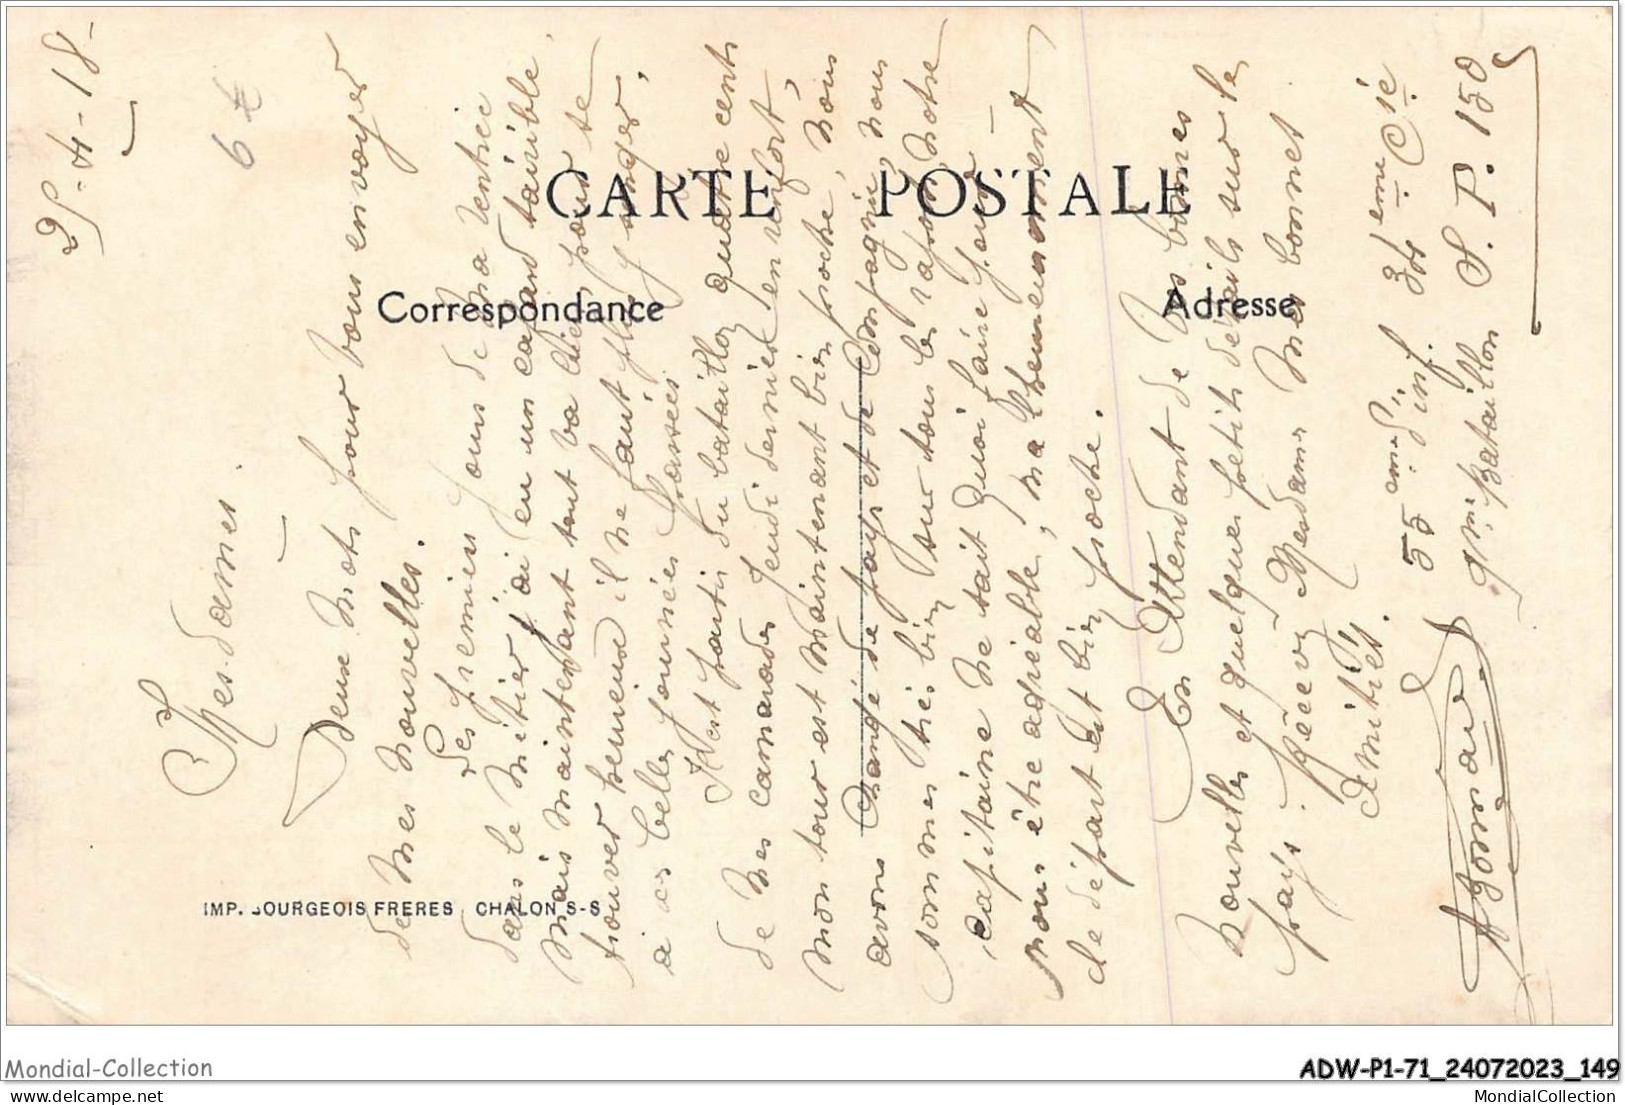 CARTE POSTALE
Correspondance
Adresse
IMP. BOURGEOIS FRERES CHALON S-S
6 €
25-4-18-
Mes-dames.
Deux Mots pour Vous envoyer
de Mes Nouvelles.
Les premiers jours de Ma rentrée
dans le Métier j'ai eu un cafard tairible.
Mais Maintenant tout va bien, pour se
trouver heureux il ne faut plus songer,
à ces belles journées passées
Il est parti du bataillon quatre cents
de Mes camarades Jeudi dernier, en renfort,
Mon tour est Maintenant bien proche, Nous
avons changé de pays et de Compagnie, Nous
sommes très bien sur tous les raport, Notre
Capitaine Ne sait quoi faire pour
Nous être agréable, Malheureusement
le départ est bien proche.
En Attendant de Vos bonnes
Nouvelles et quelques petits détails sur le
pays. Recevez Mesdames Mes bonnes
Amitiés.
55 eme d'inf. 36 eme Cie
9me Bataillon S. P. 150
Mondial-Collection
ADW-P1-71_24072023_149
MondialCollection
delcampe.net